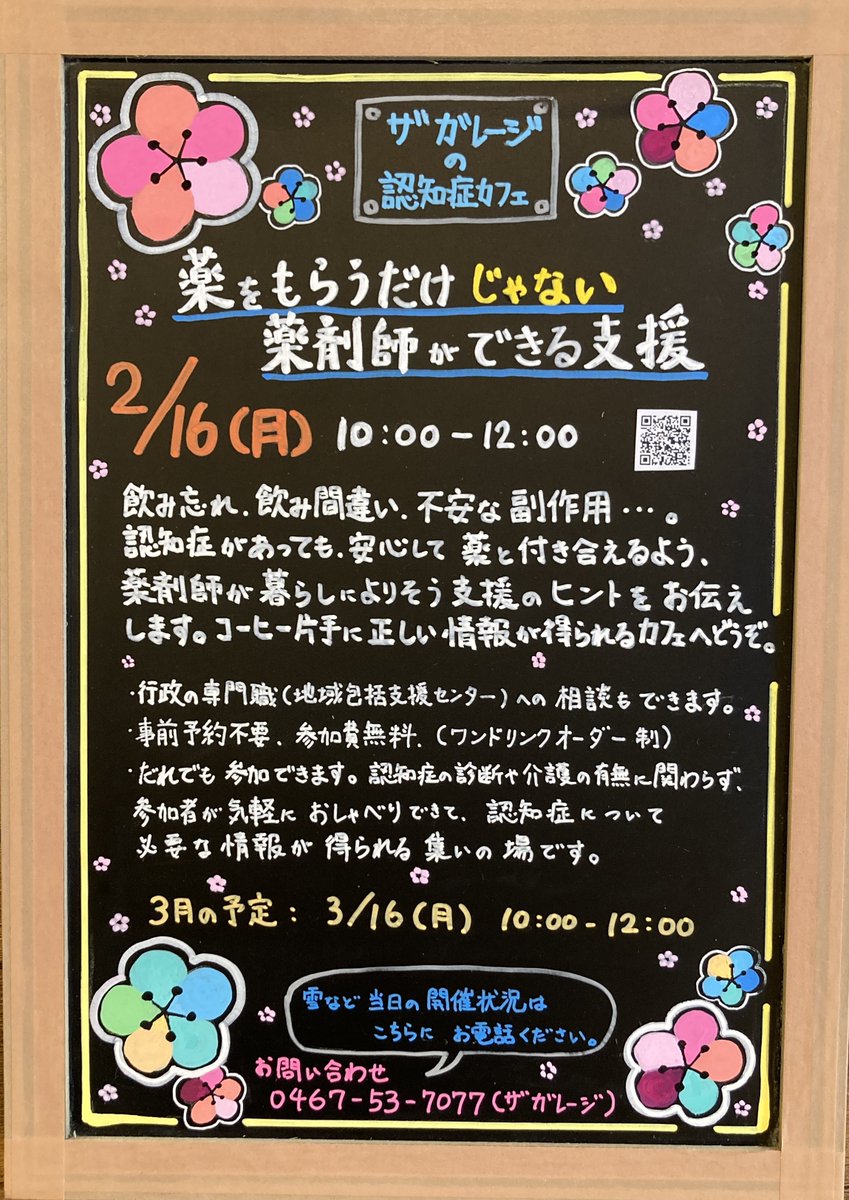 ザガレージ
の
認知症カフェ
薬をもらうだけじゃない
薬剤師ができる支援
2/16(月) 10:00-12:00
飲み忘れ、飲み間違い、不安な副作用…。
認知症があっても、安心して薬と付き合えるよう、
薬剤師が暮らしによりそう支援のヒントをお伝え
します。コーヒー片手に正しい情報が得られるカフェへどうぞ。
・行政の専門職(地域包括支援センター)への相談もできます。
・事前予約不要、参加費無料、(ワンドリンクオーダー制)
・だれでも参加できます。認知症の診断や介護の有無に関わらず、
参加者が気軽におしゃべりできて、認知症について
必要な情報が得られる集いの場です。
3月の予定: 3/16(月) 10:00-12:00
雪など当日の開催状況は
こちらにお電話ください。
お問い合わせ
0467-53-7077(ザガレージ)